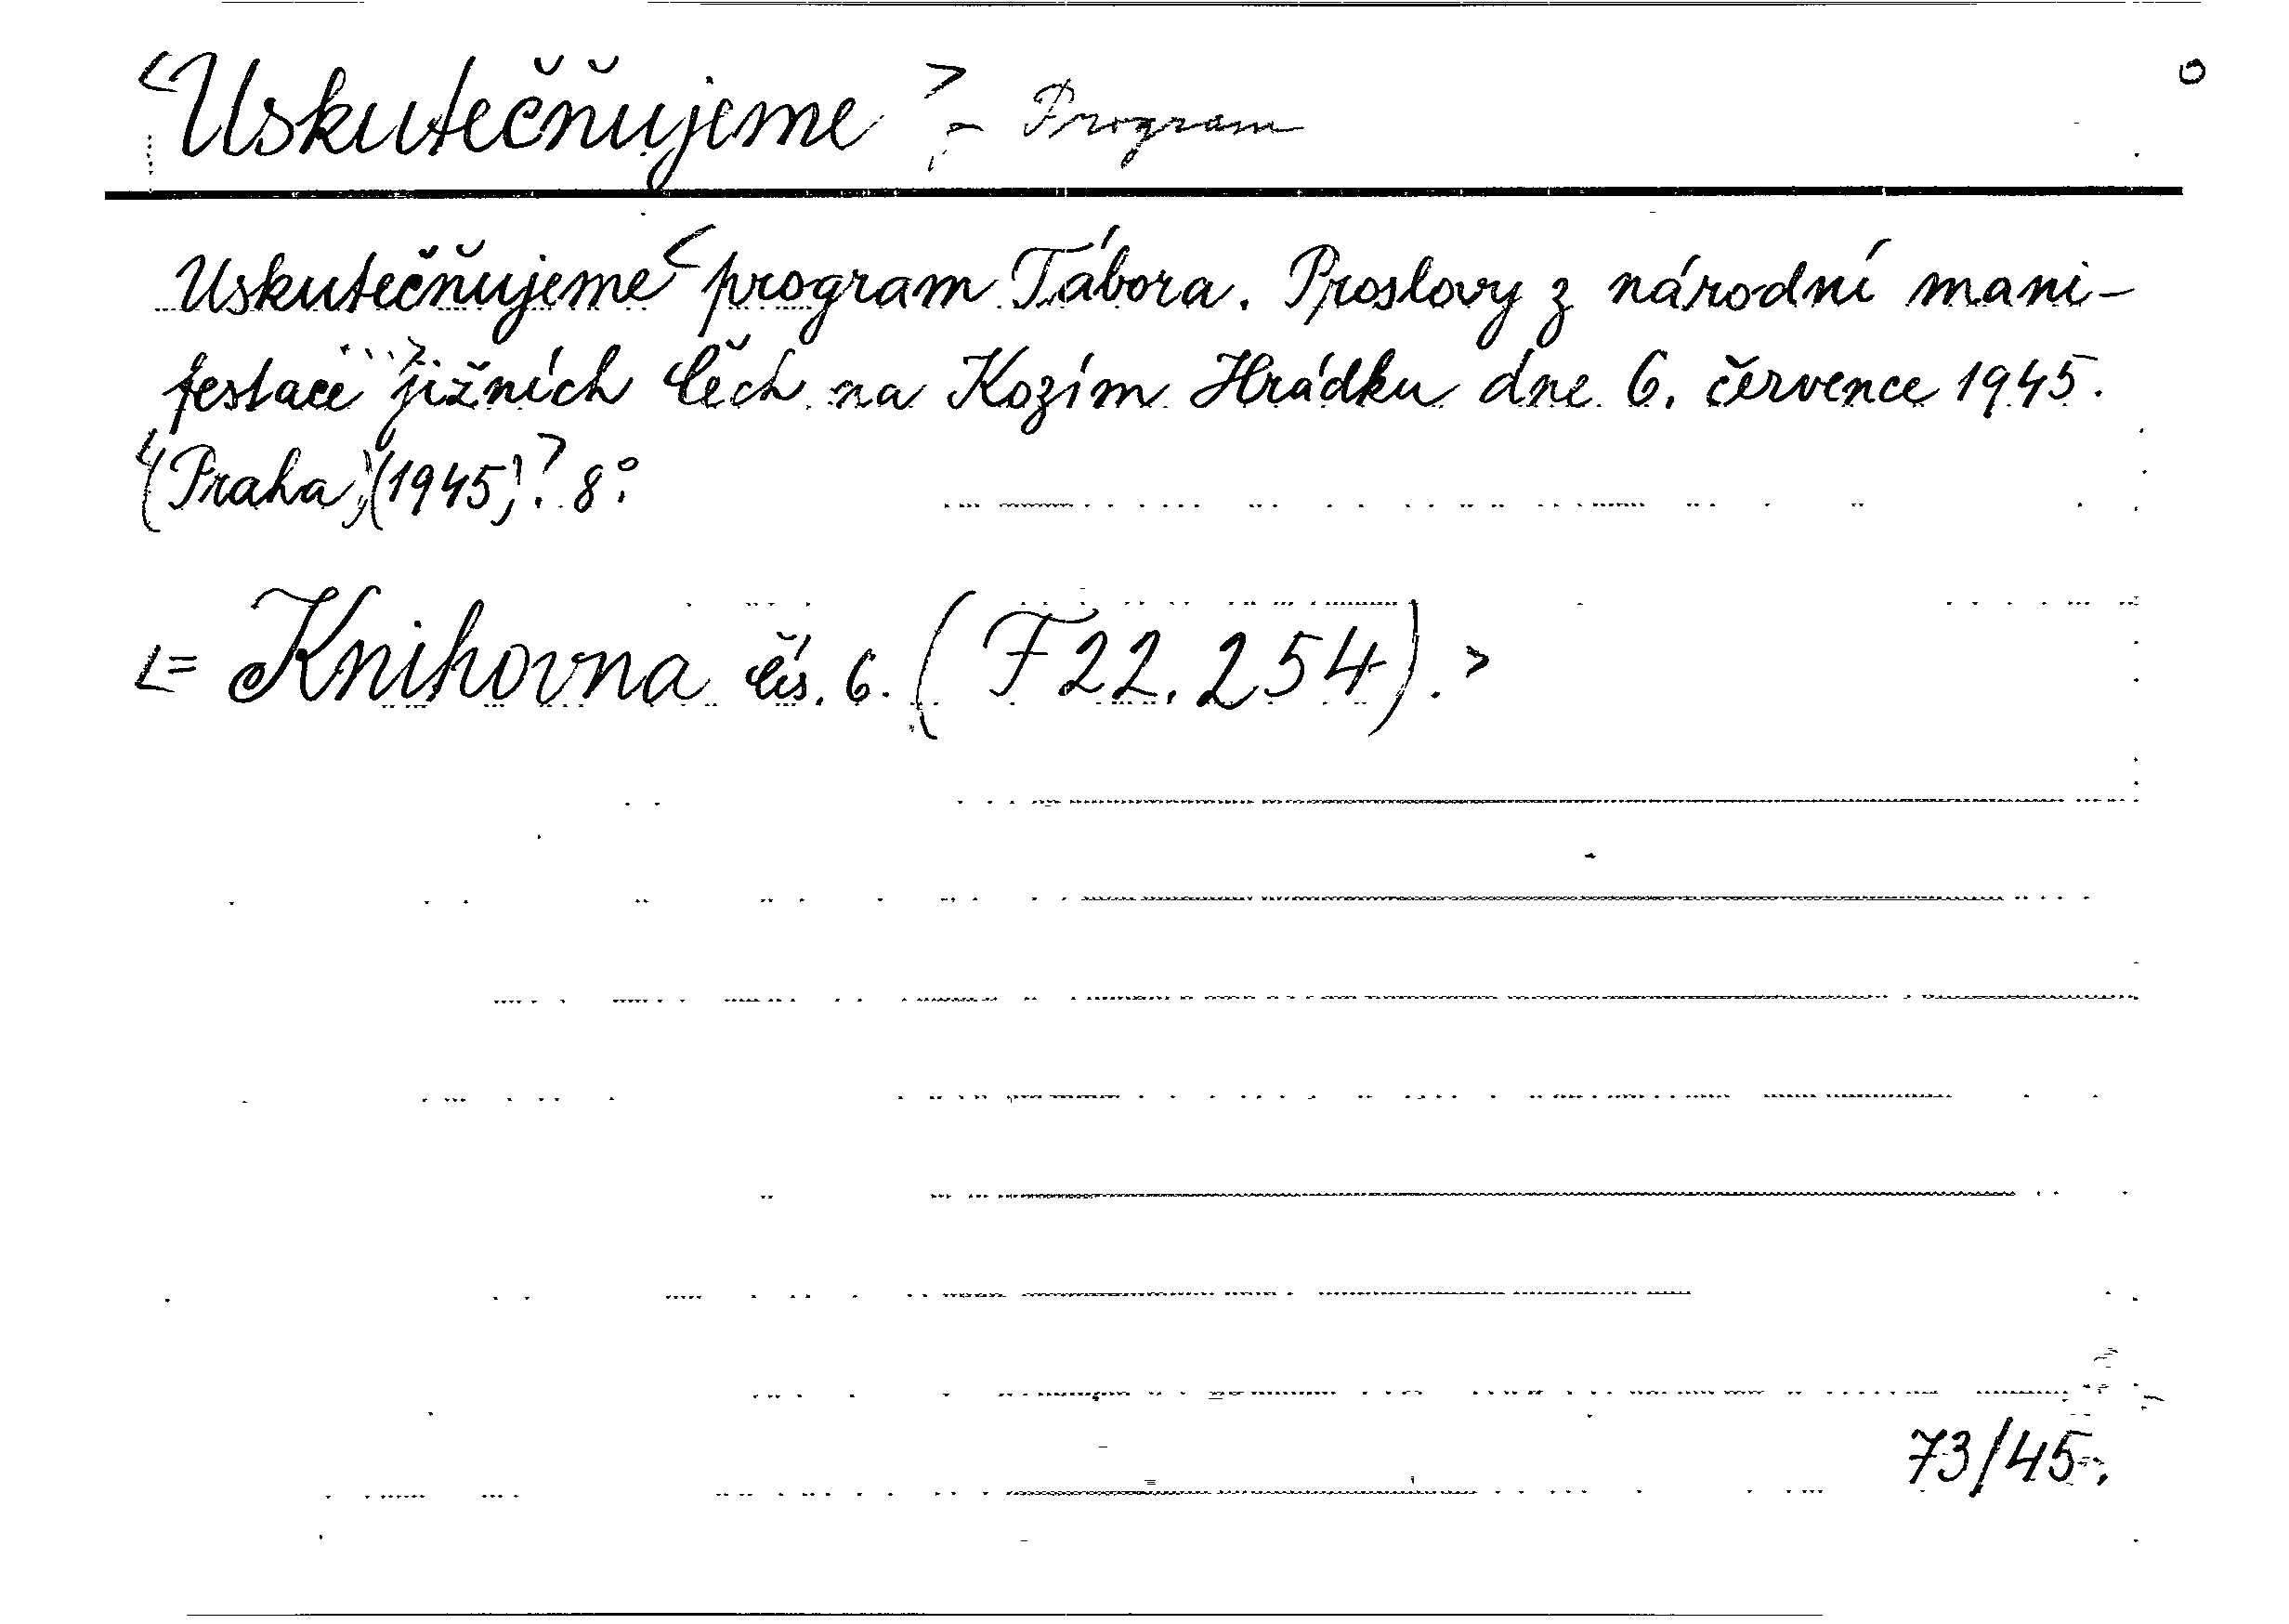 <Uskutečňujeme> - Program
Uskutečňujeme< program Tábora. Proslovy z národní mani-
festace jižních Čech na Kozím Hrádku dne 6. července 1945.
<(Praha),(1945).> 8°.
<= Knihovna čís. 6. (F 22.254).>
73/45.